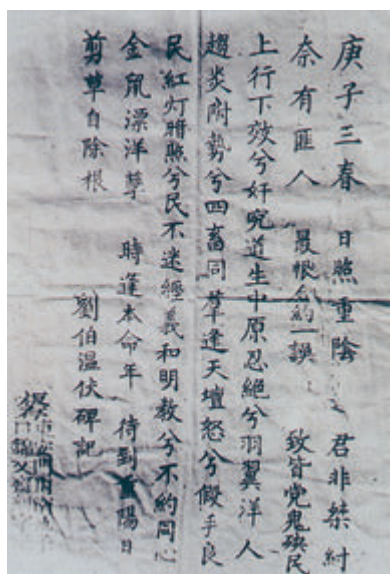 庚子三春 日照重陰 君非桀紂
奈有匪人 最恨和約一誤 致皆党鬼殃民
上行下效兮奸宄道生中原忍絕兮羽翼洋人
趨炎府勢兮四畜同羣逢天壇怒兮假手良
民紅灯照兮民不迷經義和明教兮不約同心
金鼠漂洋孽 時逢本命年 待到重陽日
剪草自除根 劉伯温伏碑記